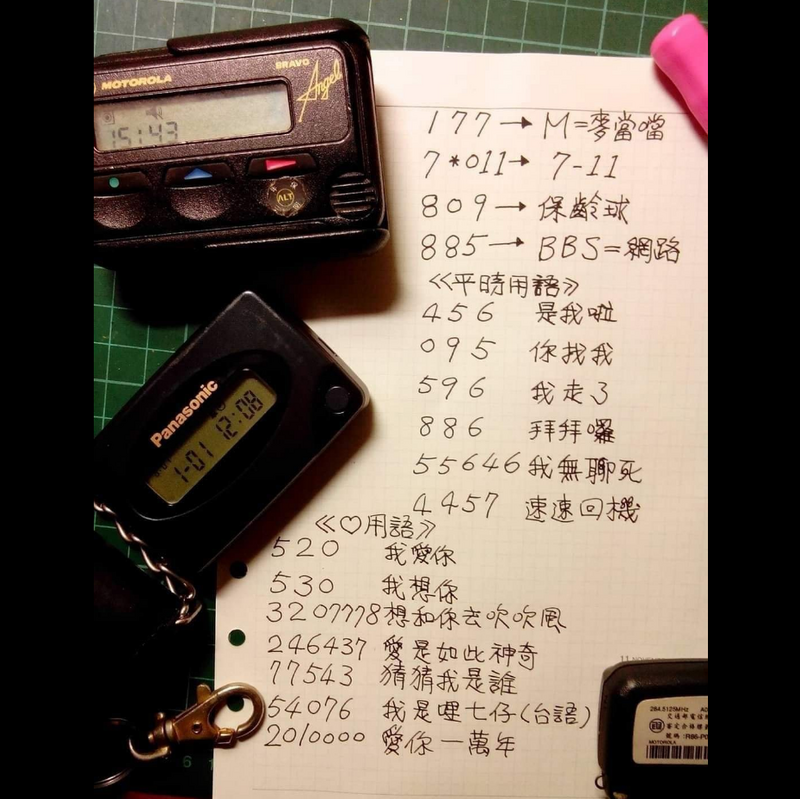 MOTOROLA
BRAVO
Angel
151:43
ALT
177→M=麥當噹
7*011→ 7-11
809→保齡球
885→BBS=網路
《平時用語》
456 是我啦
095 你找我
596 我走了
886 拜拜囉
55646我無聊死
4457 速速回機
Panasonic
1-01 12:08
《♡用語》
520 我愛你
530 我想你
3207778想和你去吹吹風
246437 愛是如此神奇
77543 猜猜我是誰
54076 我是哩七仔(台語)
2010000 愛你一萬年
284.5125MHz
交通部電信
審定合格標
MOTOROLA